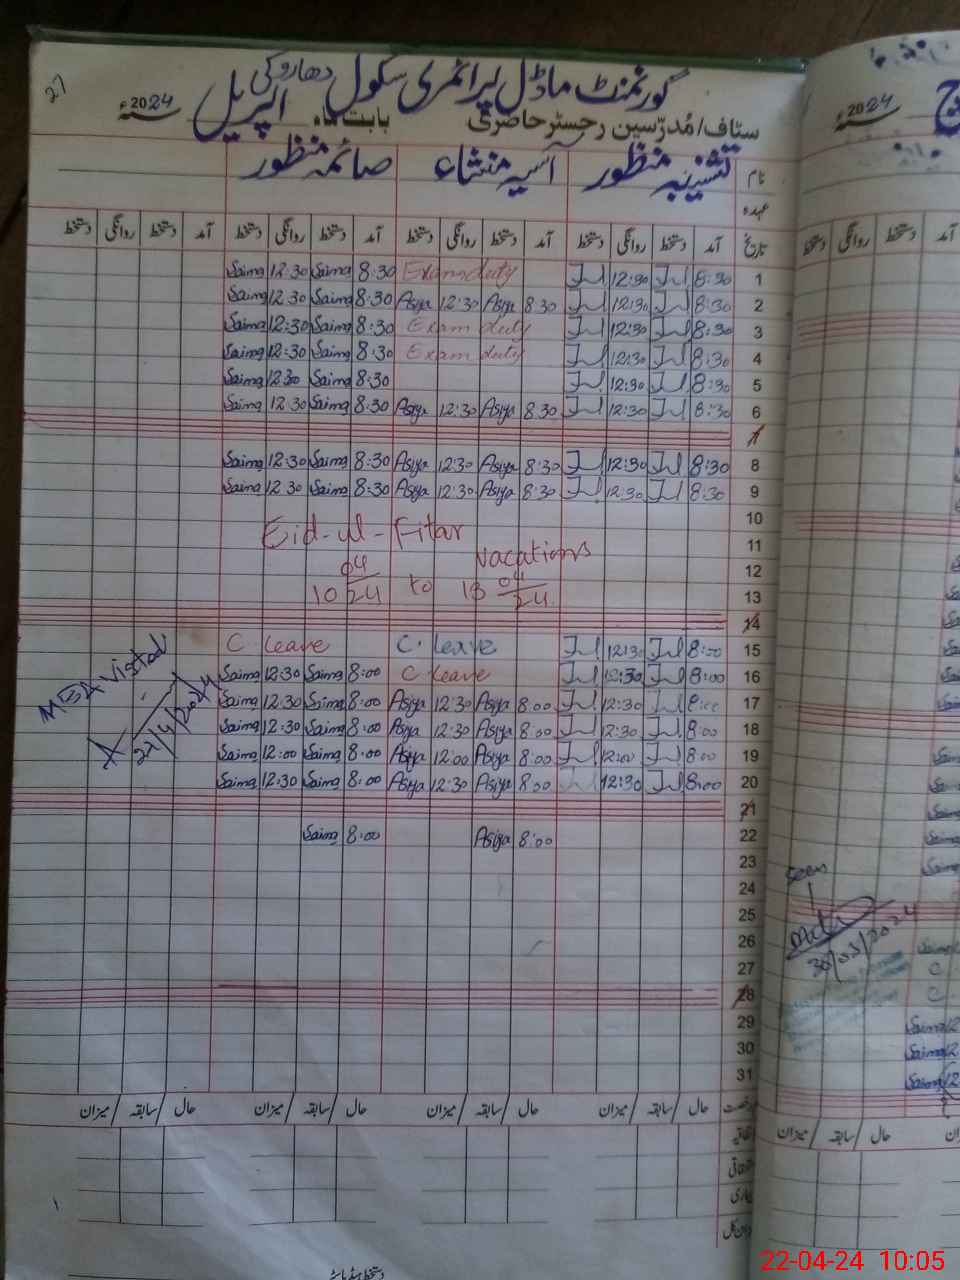 27
گورنمنٹ ماڈل پرائمری سکول دھاروکی
سٹاف/مُدرّسین رجسٹر حاضری بابت ماہ اپریل 2024ء
نام تشنیہ منظور آسیہ منشاء صائمہ منظور
عہدہ
تاریخ آمد دستخط روانگی دستخط آمد دستخط روانگی دستخط آمد دستخط روانگی دستخط آمد دستخط روانگی دستخط
Saima 12:30 Saima 8:30 Exam duty 12:30 8:30 1
Saima 12:30 Saima 8:30 Asiya 12:30 Asiya 8:30 12:30 8:30 2
Saima 12:30 Saima 8:30 Exam duty 12:30 8:30 3
Saima 12:30 Saima 8:30 Exam duty 12:30 8:30 4
Saima 12:30 Saima 8:30 12:30 8:30 5
Saima 12:30 Saima 8:30 Asiya 12:30 Asiya 8:30 12:30 8:30 6
7
Saima 12:30 Saima 8:30 Asiya 12:30 Asiya 8:30 12:30 8:30 8
Saima 12:30 Saima 8:30 Asiya 12:30 Asiya 8:30 12:30 8:30 9
10
Eid-ul-Fitar 11
vacations 12
10 04/24 to 13 04/24 13
14
C. Leave C. Leave 12:30 8:00 15
Saima 12:30 Saima 8:00 C. Leave 12:30 8:00 16
Saima 12:30 Saima 8:00 Asiya 12:30 Asiya 8:00 12:30 8:00 17
Saima 12:30 Saima 8:00 Asiya 12:30 Asiya 8:00 12:30 8:00 18
Saima 12:00 Saima 8:00 Asiya 12:00 Asiya 8:00 12:00 8:00 19
Saima 12:30 Saima 8:00 Asiya 12:30 Asiya 8:00 12:30 8:00 20
21
Saima 8:00 Asiya 8:00 22
23
24
25
26
27
28
29
30
31
MEA Visted
22/4/2024
حال / سابقہ / میزان حال / سابقہ / میزان حال / سابقہ / میزان حال / سابقہ / میزان
اتفاقیہ
2024ء
آمد دستخط روانگی دستخط
Seen
30/03/2024
Saima
C.
C.
Saima 12
Saima 12
Saima 12
حال / سابقہ / میزان
22-04-24 10:05